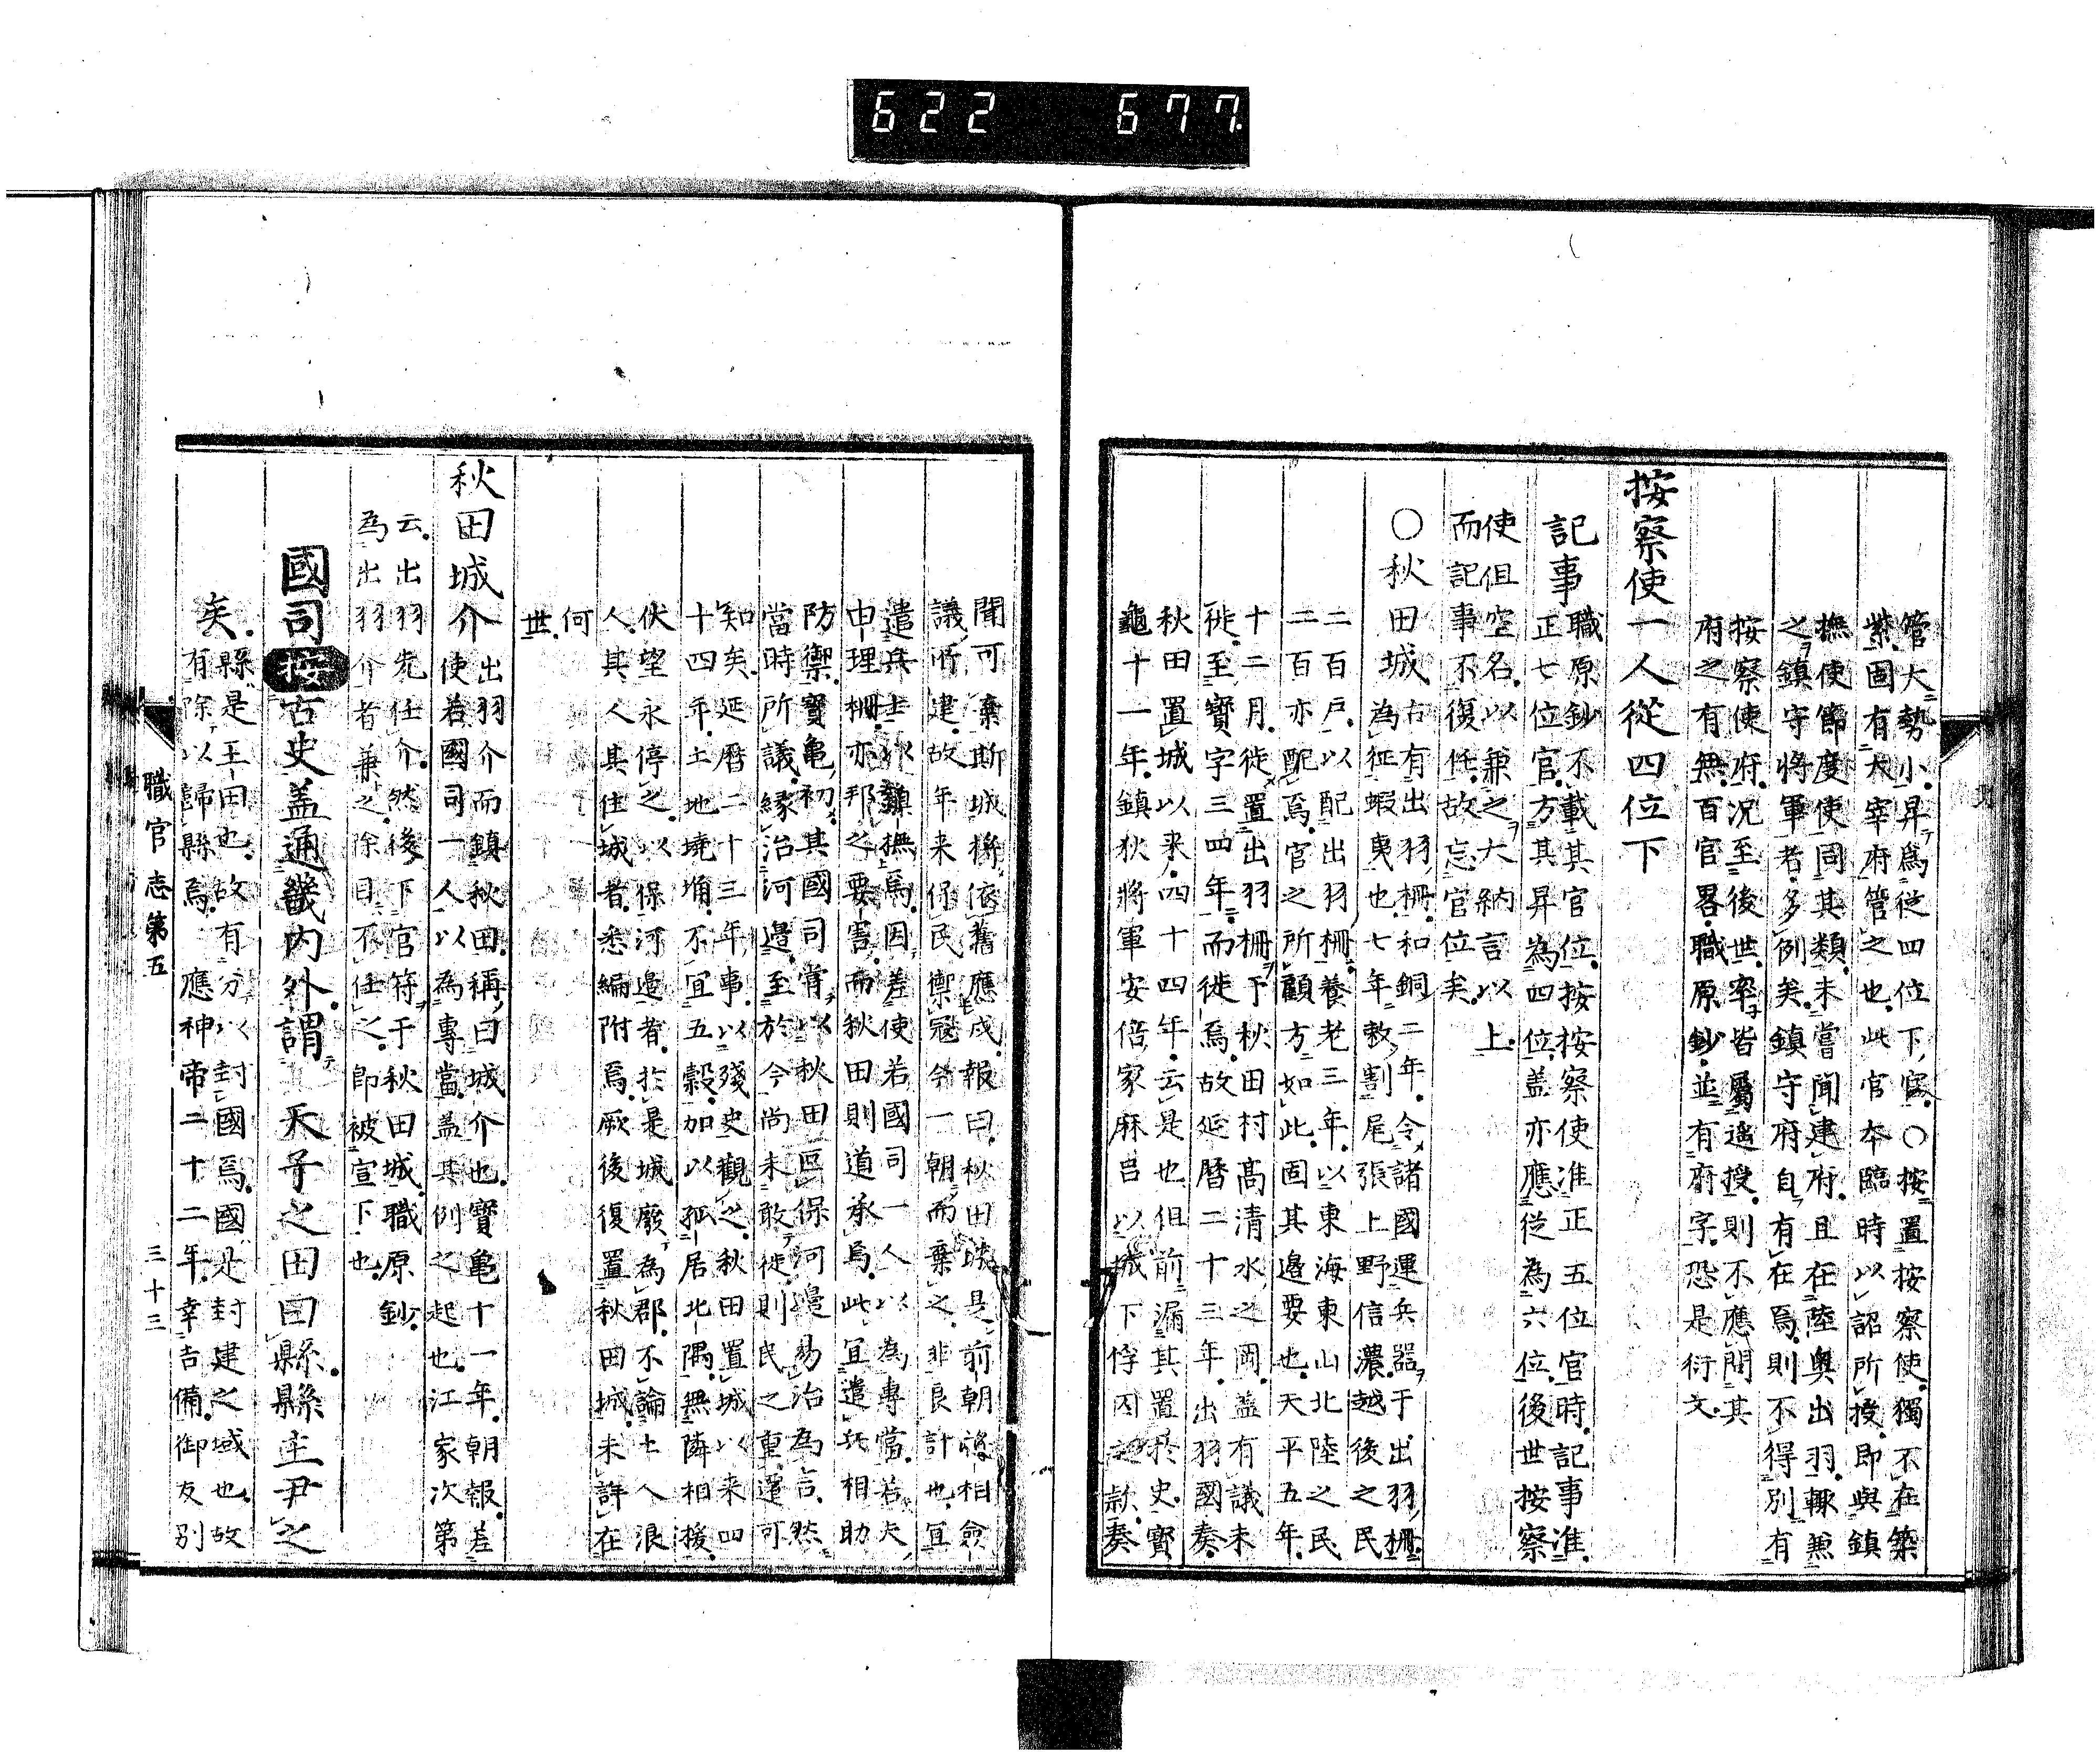 622 677
管大勢小昇為従四位下官○按置按察使獨不在築
紫國有大宰府管之也此官本臨時以詔所授即與鎮
撫使節度使同其類未嘗聞建府且在陸奥出羽輙兼
之鎮守將軍者多例矣鎮守府自有在焉則不得別有
按察使府况至後世率皆屬遥授則不應問其
府之有無百官畧職原鈔並有府字恐是衍文
按察使一人従四位下
記事職原鈔不載其官位按按察使准正五位官時記事准
正七位官方其昇為四位盖亦應従為六位後世按察
使但空名以兼之大納言以上
而記事不復任故忘官位矣
○秋田城古有出羽柵和銅二年令諸國運兵器于出羽柵
為征蝦夷也七年敕割尾張上野信濃越後之民
二百戸以配出羽柵養老三年以東海東山北陸之民
二百亦配焉官之所顧方如此固其邉要也天平五年
十二月徙置出羽柵下秋田村髙清水之岡盖有議未
徙至寳字三四年而徙焉故延暦二十三年出羽國奏
秋田置城以来四十四年云是也但前漏其置於史寳
龜十一年鎮狄將軍安倍家麻呂以城下俘囚之款奏
聞可棄斯城將依舊應戍報曰秋田城是前朝將相僉
議所建故年来保民禦冠今一朝而棄之非良計也宜
遣兵士以鎮撫焉因差使若國司一人以為專當若夫
由理柵亦邦之要害而秋田則道承焉此宜遣兵相助
防禦寳亀初其國司嘗以秋田區保河邉易治為言然
當時所議縁治河邉至於今尚未敢徙則民之重遷可
知矣延暦二十三年事以殘史觀之秋田置城以来四
十四年土地墝埆不宜五穀加以孤居北隅無隣相援
伏望永停之以保河邉者於是城廢為郡不論土人浪
人其人其住城者悉編附焉厥後復置秋田城未詳在
何
世
秋田城介出羽介而鎮秋田稱曰城介也寳亀十一年朝報差
使若國司一人以為專當盖其例之起也江家次第
云出羽先任介然後下官符于秋田城職原鈔
為出羽介者兼之除目不任之即被宣下也
國司按古史盖通畿内外謂 天子之田曰縣縣主尹之
矣縣是王田也故有分以封國焉國是封建之域也故
有除以歸縣焉 應神帝二十二年幸吉備御友別
職官志第五 三十三